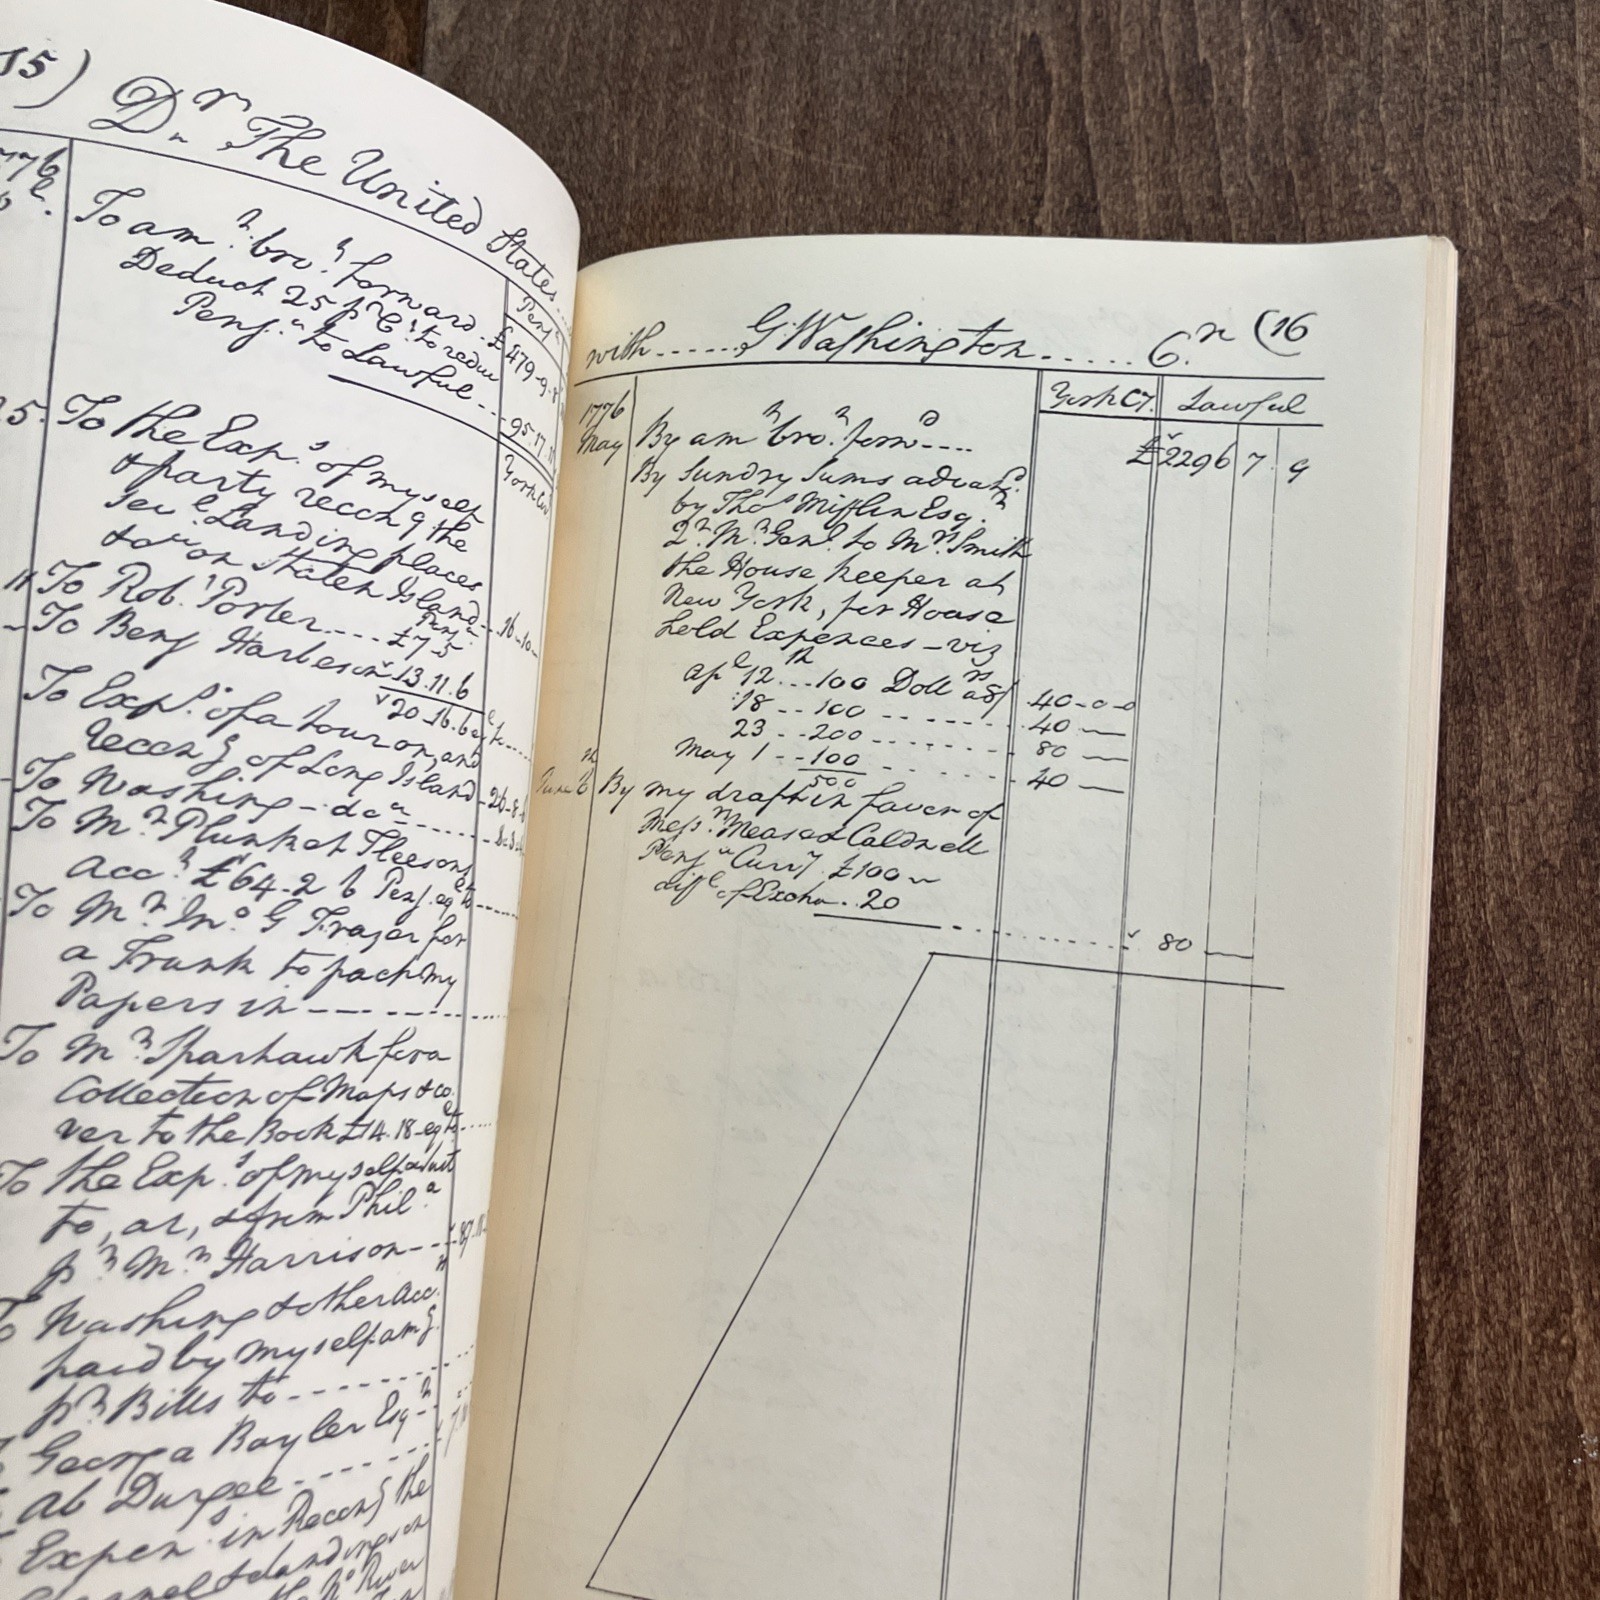 15) Dr The United States
1776
To amt. brot. forward £ 479-9-8
Deduct 25 pr Ct. to reduce
Pensa. to Lawful 95.17.11
25. To the Exps. of myself
& party reccong the
sevl. Landing places
on Staten Island 16-10
To Robt. Porter £7-5
To Benj Harbeson 13.11.6
20.16.6
To Exps. of a tour on, and
reccong of Long Island 26-8-6
To Washing - do
To Mr. Plunket Fleeson
Acct. £64-2 6 Pens. eql to
To Mr. Jno. G Frazer for
a Trunk to pack my
Papers in
To Mr. Sparhawk for a
Collection of Maps & co
ver to the Book £14.18 eql to
To the Exps. of myself & suit
to, at, & from Phila
pr. Mr. Harrison
To Washing & other Acc.
paid by myself amg.
pr. Bills to
George Baylor Esqr.
Ab Durgee
Expens. in Reccong the
Channel & Landings on
with G. Washington Cr (16
York Cy. Lawful
1776
May By amt brot. forwd £2296 7 9
By Sundry Sums advancd.
by Thos. Mifflin Esqr.
Qr. Mr. Genl. to Mrs. Smith
the House keeper at
New York, for House
hold Expences - viz
Apl 12th 100 Dollrs a 8/ 40-0-0
18 100 40
23 200 80
May 1 100 40
500
June 6th By my draft in favor of
Messrs. Mease & Caldwell
Pensa Curry £100
diffe of Excha. 20
80